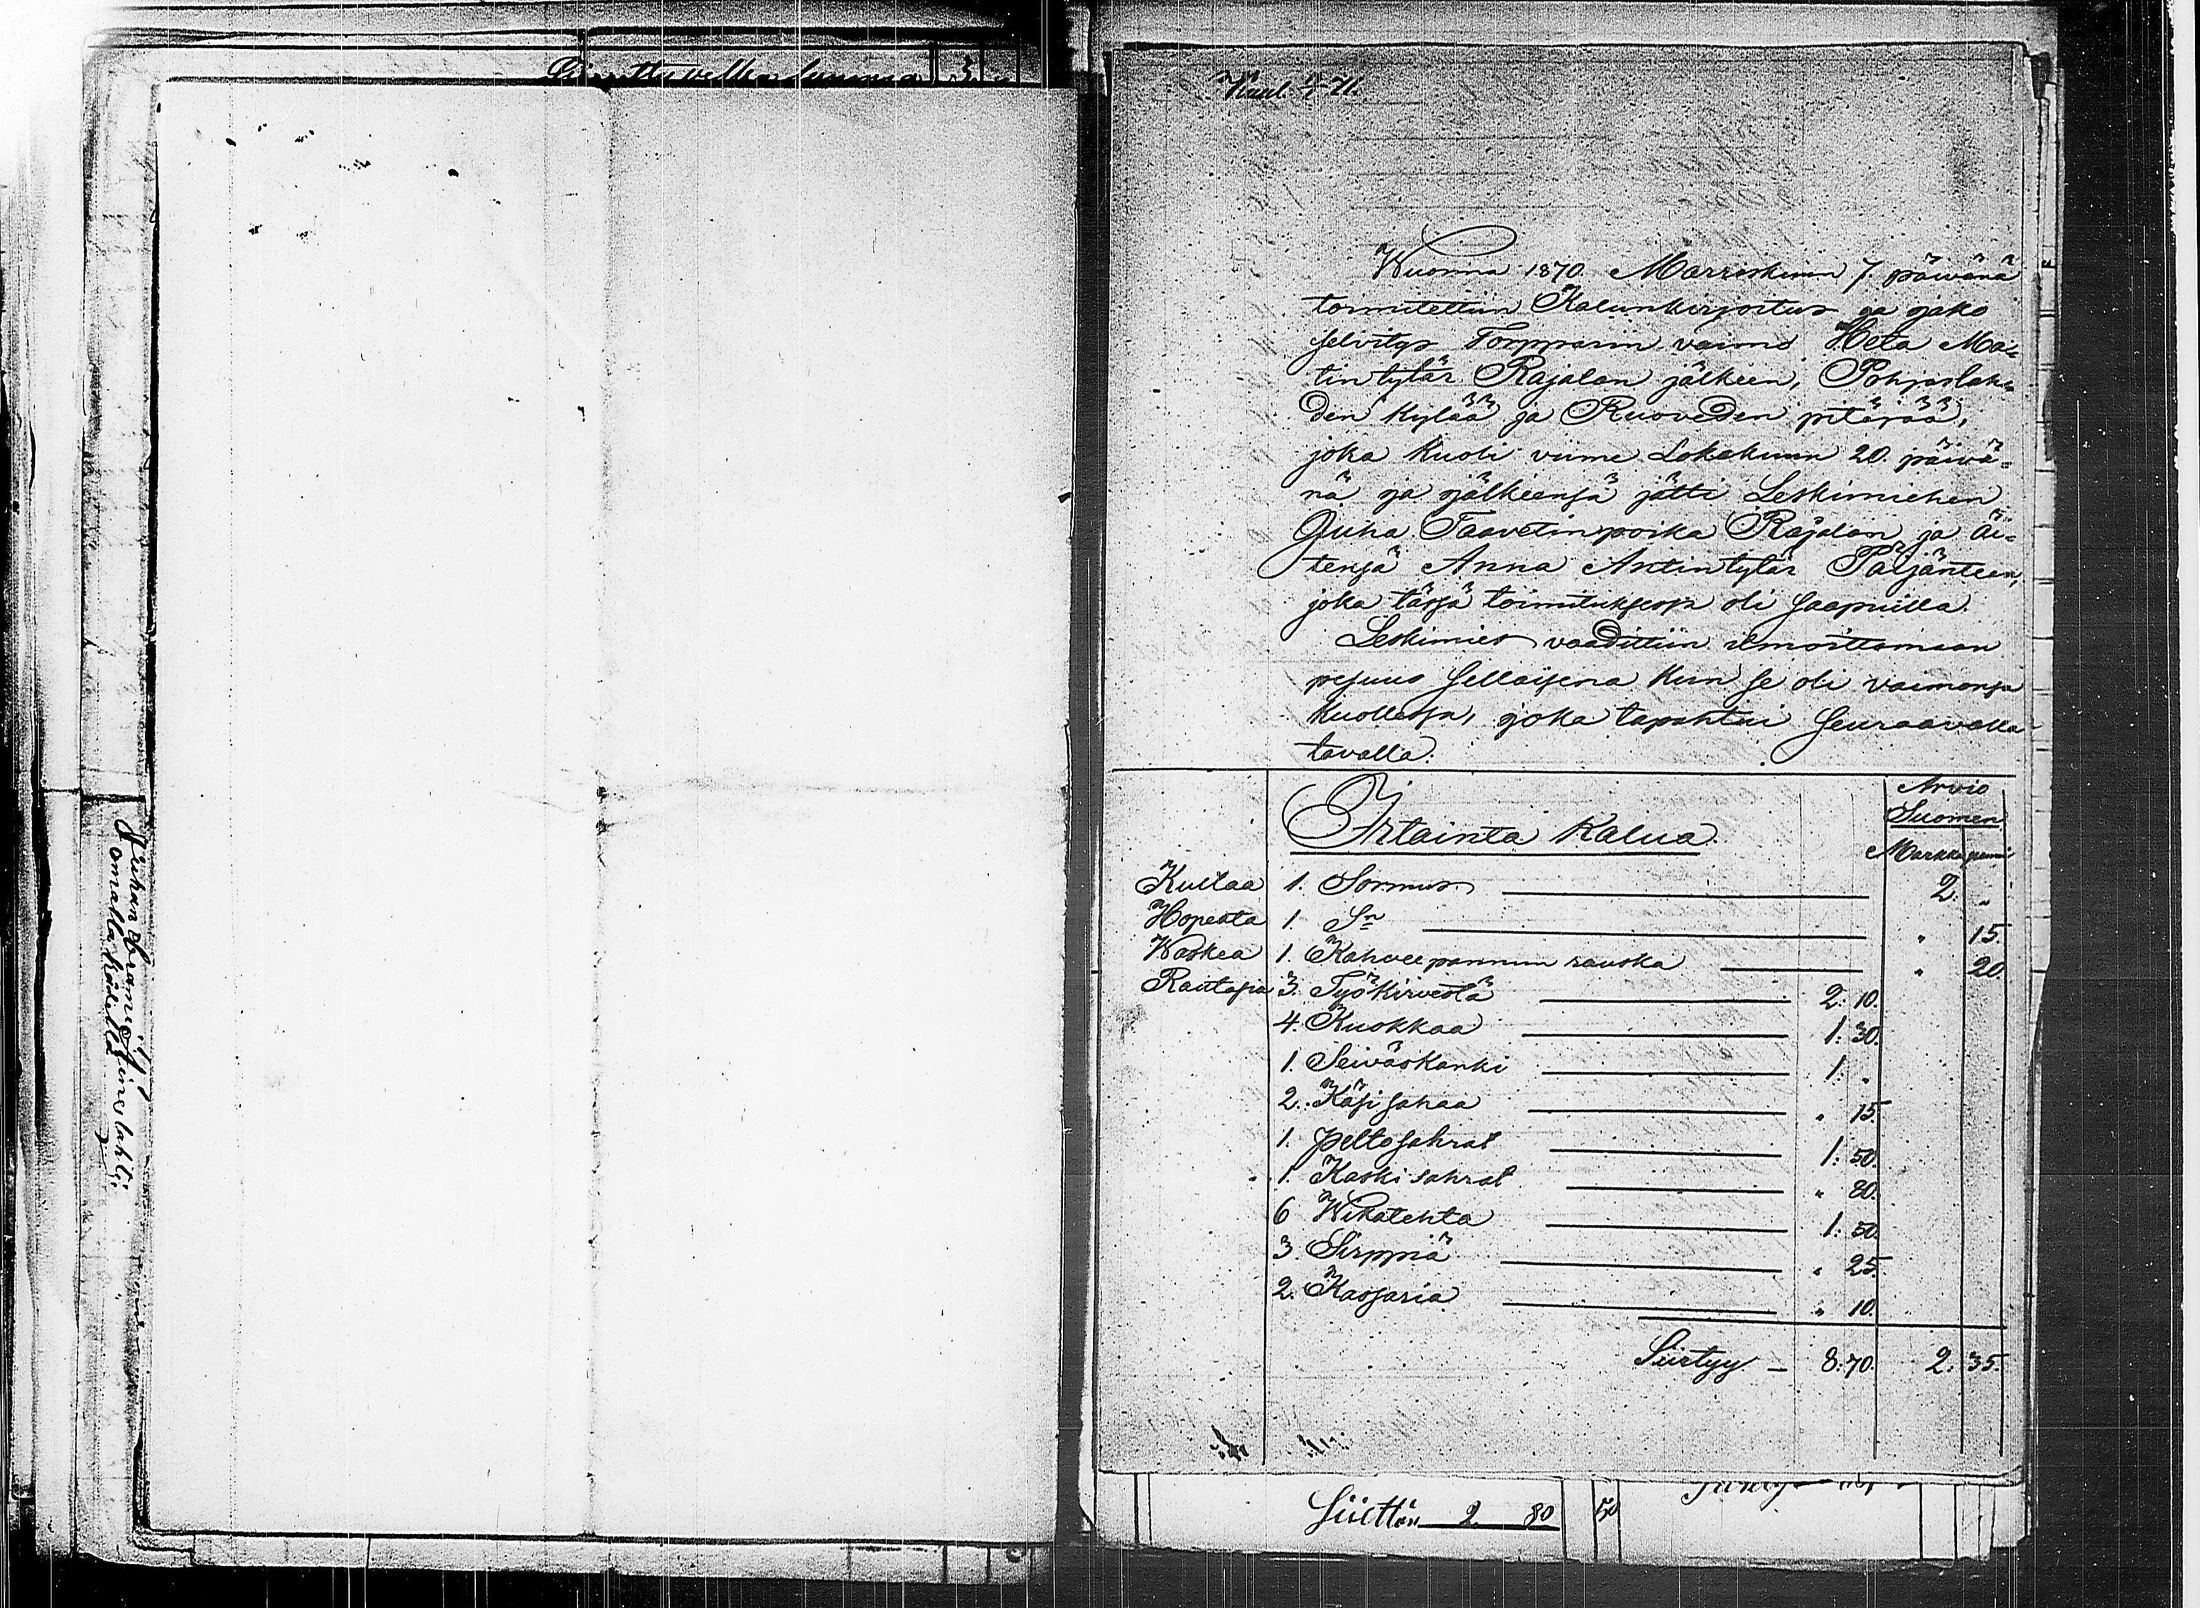 Juhan Abrami
omalla kädellä
Kuul. 4/1 71.
Wuonna 1870. Marraskuun 7. päivänä
toimitettiin Kalunkirjoitus ja jako
selvitys Torpparin vaimo Heta Ma-
tintytär Rajalan jälkeen, Pohjaslah-
den kylää ja Ruoveden pitäjää,
joka kuoli viime Lokakuun 20. päivä-
nä ja jälkeensä jätti Leskimiehen
Juha Taavetinpoika Rajalan ja äi-
tensä Anna Antintytär Päijänteen,
joka tässä toimituksessa oli saapuilla.
Leskimies vaadittiin ilmoittamaan
pesuus sellaisena kuin se oli vaimonsa
kuollessa, joka tapahtui seuraavalla
tavalla:
Arvio
Suomen
Irtainta Kalua.
Markka penni
Kultaa 1. Sormus 2. "
Hopeata 1. Sn " 15.
Waskea 1. Kahveepannun rauska " 20.
Rautasia 3. Työkirvestä 2. 10.
4. Kuokkaa 1. 30.
1. Seiväskanki 1. "
2. Käsi sahaa " 15.
1. pelto sahrat 1. 50.
1. Kaski sahrat " 80.
6 Wikatehta 1. 50.
3. Sirppiä " 25.
2. Kassaria " 10.
Siirtyy — 8:70. 2. 35.
Siirttöä 2 80 50